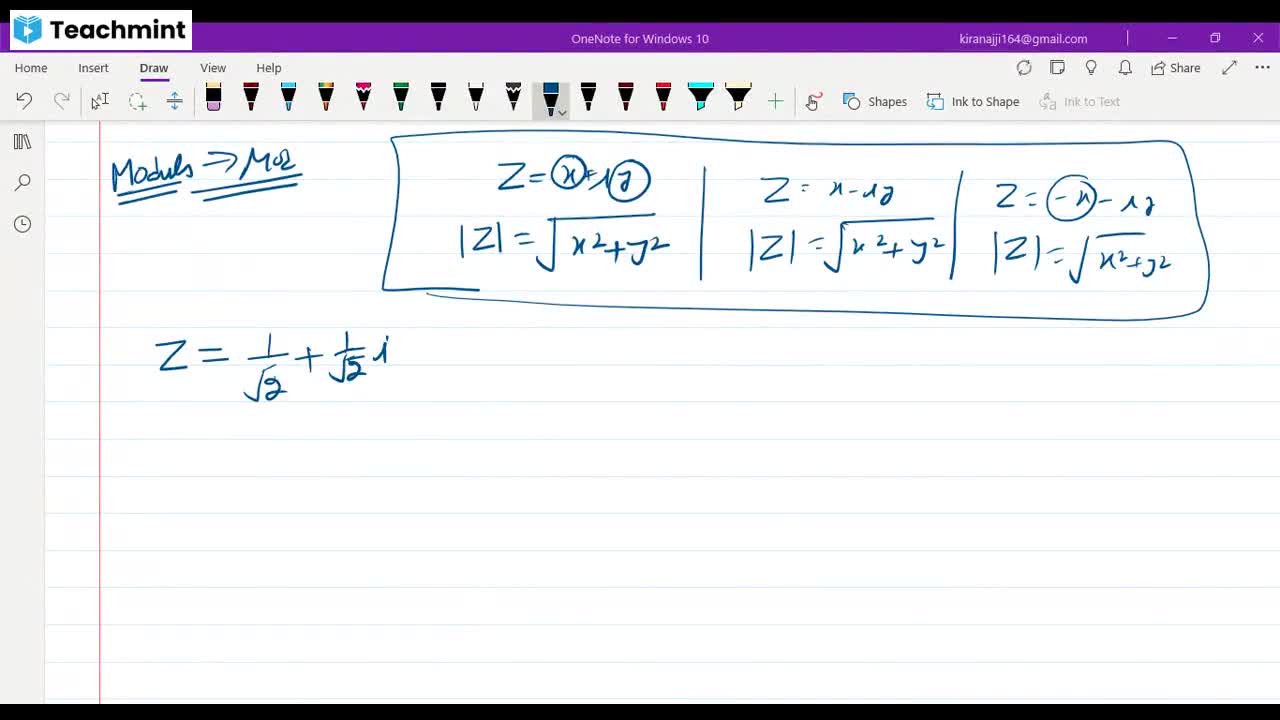 Teachmint
OneNote for Windows 10
kiranajji164@gmail.com
Home Insert Draw View Help
Share
Shapes
Ink to Shape
Ink to Text
Moduls ⇒ Moz
Z = x + iy
|Z| = √x²+y²
Z = x - iy
|Z| = √x²+y²
Z = -x - iy
|Z| = √x²+y²
Z = 1/√2 + 1/√2 i